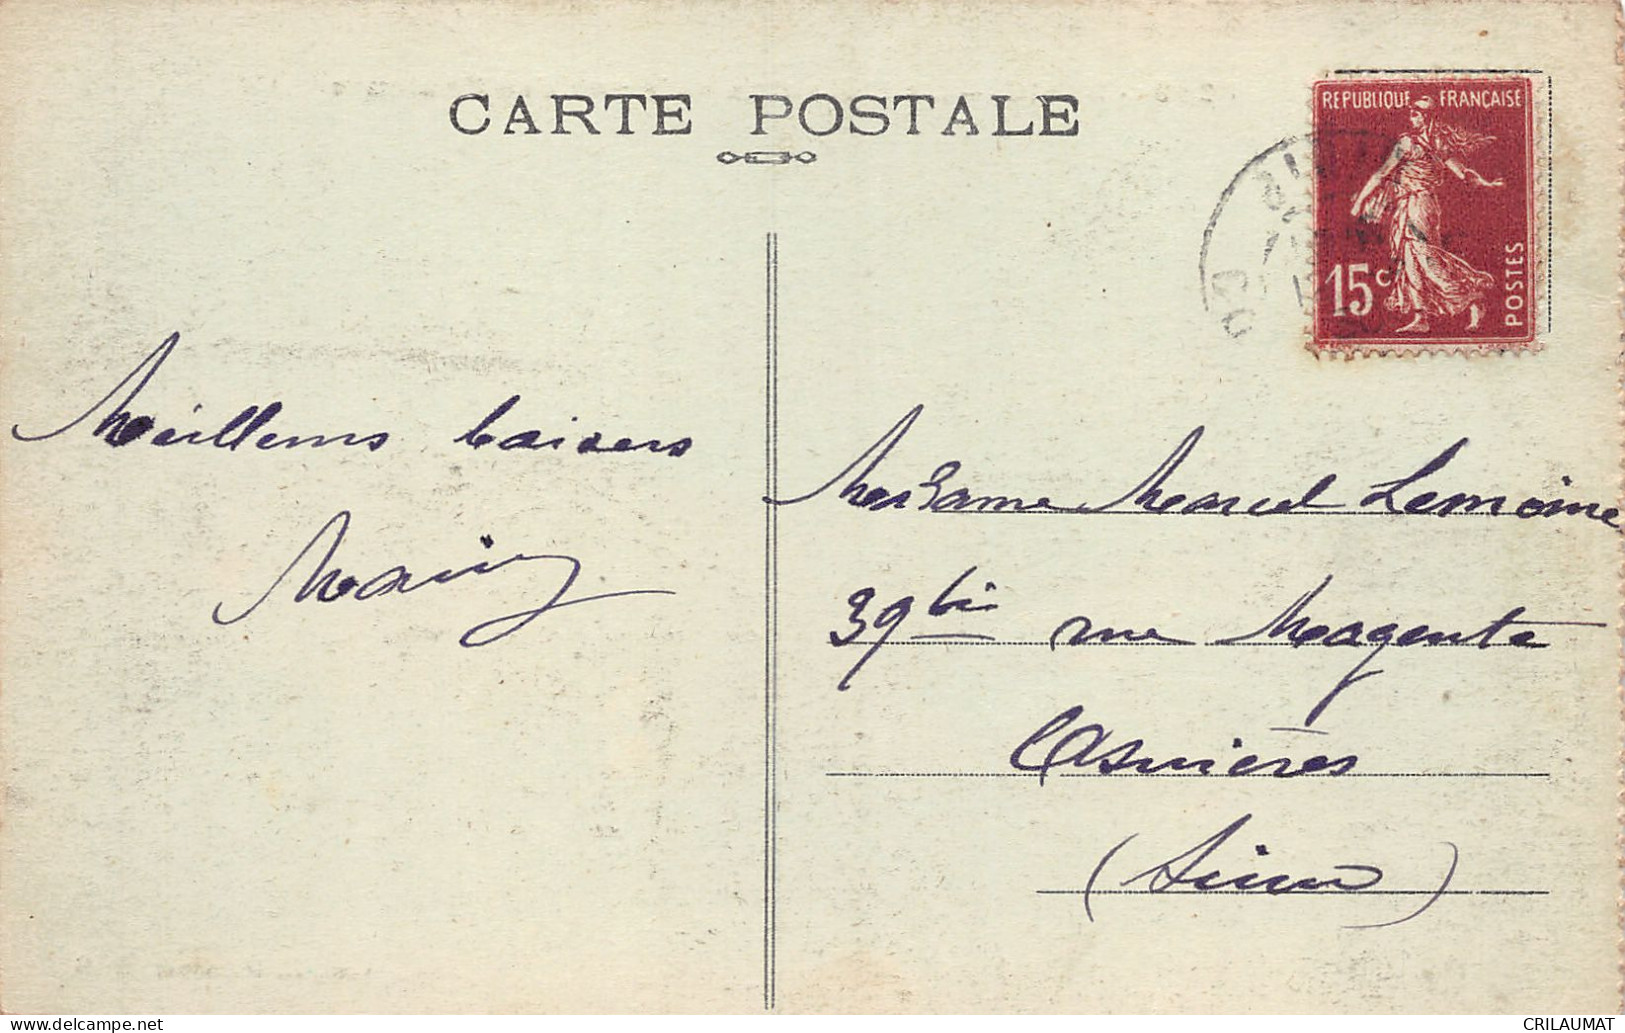 CARTE POSTALE
REPUBLIQUE FRANÇAISE
15c
POSTES
Meilleurs baisers
Madame Marcel Lemoine
39bis rue Magenta
Asnières
(Seine)
CRILAUMAT